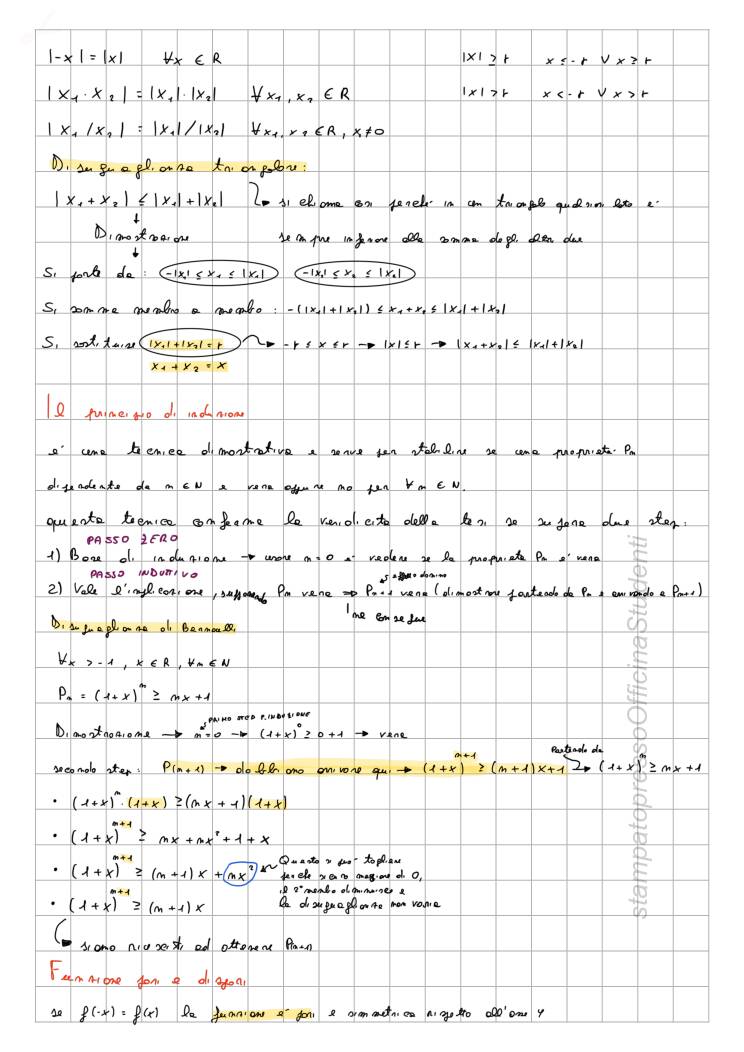 |-x| = |x| ∀x ∈ R |x| ≥ r x ≤ -r ∨ x ≥ r
|x₁ · x₂| = |x₁| · |x₂| ∀x₁, x₂ ∈ R |x| > r x < -r ∨ x > r
|x₁ / x₂| = |x₁| / |x₂| ∀x₁, x₂ ∈ R, x ≠ 0
Disuguaglianza triangolare:
|x₁ + x₂| ≤ |x₁| + |x₂| si chiama così perché in un triangolo qualsiasi lato è
↓
Dimostrazione sempre inferiore alla somma degli altri due
↓
Si parte da: -|x₁| ≤ x₁ ≤ |x₁| -|x₂| ≤ x₂ ≤ |x₂|
Si somma membro a membro: -(|x₁| + |x₂|) ≤ x₁ + x₂ ≤ |x₁| + |x₂|
Si sostituisce |x₁| + |x₂| = r → -r ≤ x ≤ r → |x| ≤ r → |x₁ + x₂| ≤ |x₁| + |x₂|
x₁ + x₂ = x
Il principio di induzione
è una tecnica dimostrativa e serve per stabilire se una proprietà Pn
dipendente da n ∈ N è vera oppure no per ∀n ∈ N.
questa tecnica conferma la veridicità della tesi se supera due step:
PASSO ZERO
1) Base di induzione → usare n = 0 e vedere se la proprietà Pn è vera
PASSO INDUTTIVO
2) Vale l'implicazione, supponendo Pn vera ⇒ Pn+1 vera (dimostrare partendo da Pn e arrivando a Pn+1)
ne consegue
Disuguaglianza di Bernoulli
∀x > -1, x ∈ R, ∀n ∈ N
Pn = (1+x)ⁿ ≥ nx + 1
PRIMO STEP P. INDUZIONE
Dimostrazione → n = 0 → (1+x)⁰ ≥ 0 + 1 → vera
Partendo da
secondo step: P(n+1) → dobbiamo arrivare qui → (1+x)ⁿ⁺¹ ≥ (n+1)x+1 → (1+x)ⁿ ≥ nx + 1
• (1+x)ⁿ · (1+x) ≥ (nx + 1)(1+x)
• (1+x)ⁿ⁺¹ ≥ nx + nx² + 1 + x
• (1+x)ⁿ⁺¹ ≥ (n+1)x + nx² Questo si può togliere
perché x sarà maggiore di 0,
il 2° membro diminuisce e
la disuguaglianza non varia
• (1+x)ⁿ⁺¹ ≥ (n+1)x
siamo riusciti ad ottenere Pn+1
Funzione pari e dispari
se f(-x) = f(x) la funzione è pari e simmetrica rispetto all'asse y
stampatopressoOfficinaStudenti